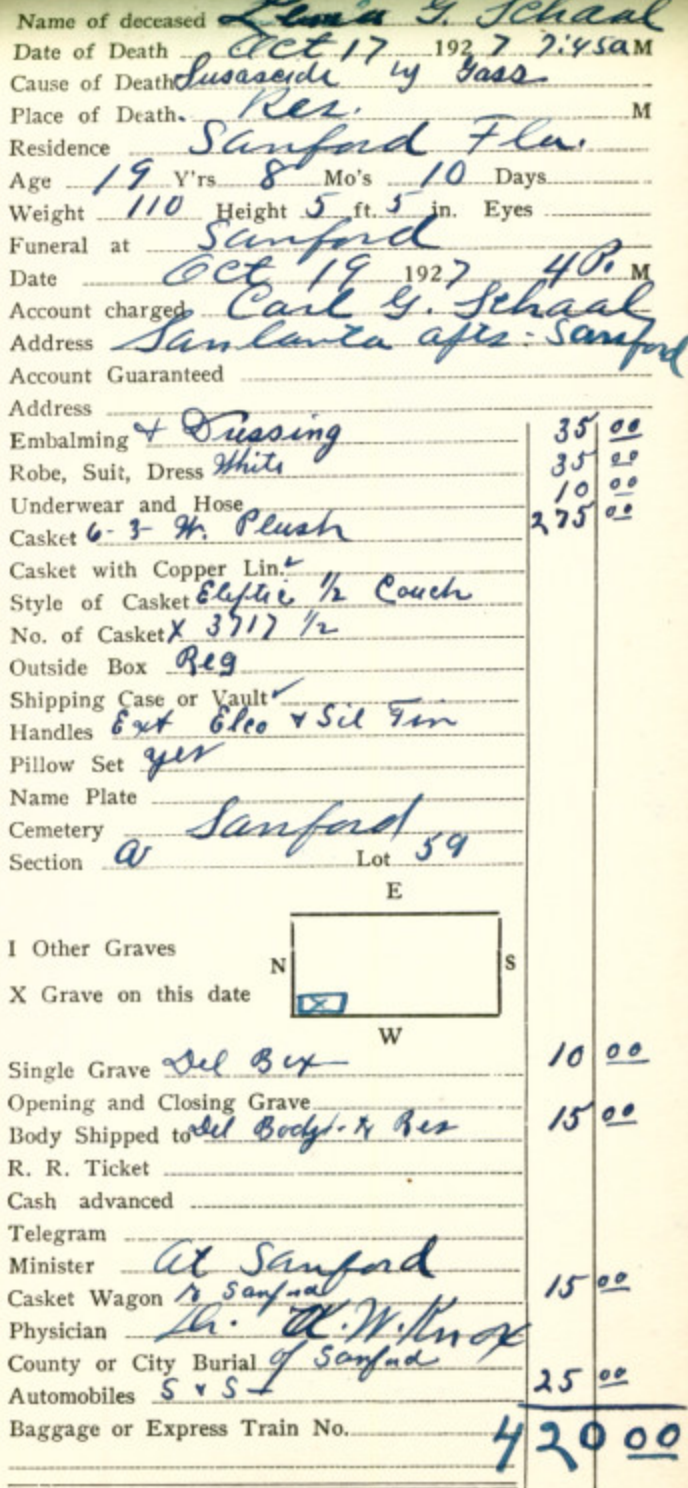 Name of deceased G. Schaal
Date of Death Oct 17 1927 7:45a M
Cause of Death Susascide by Gass
Place of Death. Res. M
Residence Sanford Fla.
Age 19 Y'rs 8 Mo's 10 Days
Weight 110 Height 5 ft. 5 in. Eyes
Funeral at Sanford
Date Oct 19 1927 4 P. M
Account charged Carl G. Schaal
Address Sanlanta apts - Sanford
Account Guaranteed
Address
Embalming & Dressing 35 00
Robe, Suit, Dress White 35 00
Underwear and Hose 10 00
Casket 6-3 W. Plush 275 00
Casket with Copper Lin.
Style of Casket Eliptic 1/2 Couch
No. of Casket X 3717 1/2
Outside Box Reg
Shipping Case or Vault
Handles Ext Elco & Sil Tin
Pillow Set yes
Name Plate
Cemetery Sanford
Section A Lot 59
E
I Other Graves
N S
X Grave on this date X
W
Single Grave Del Box 10 00
Opening and Closing Grave
Body Shipped to Del Body to Res 15 00
R. R. Ticket
Cash advanced
Telegram
Minister At Sanford
Casket Wagon to Sanford 15 00
Physician Dr. W. Knox
County or City Burial of Sanford
Automobiles S & S 25 00
Baggage or Express Train No. 420 00